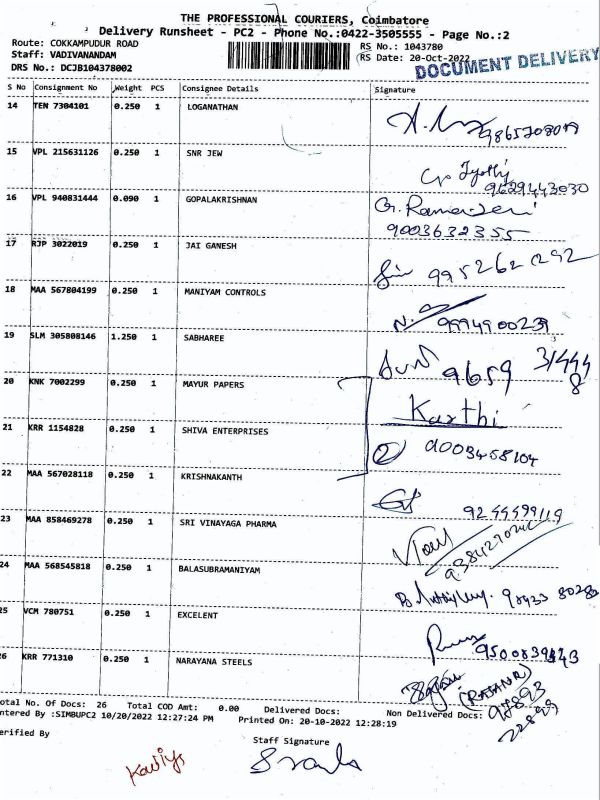 THE PROFESSIONAL COURIERS, Coimbatore
Delivery Runsheet - PC2 - Phone No.:0422-3505555 - Page No.:2
Route: COKKAMPUDUR ROAD RS No.: 1043780
Staff: VADIVANANDAM RS Date: 20-Oct-2022
DRS No.: DCJB104378002 DOCUMENT DELIVERY
S No Consignment No Weight PCS Consignee Details Signature
14 TEN 7304101 0.250 1 LOGANATHAN
15 VPL 215631126 0.250 1 SNR JEW
Jyothi
9629443030
16 VPL 940831444 0.090 1 GOPALAKRISHNAN
9003632355
17 RJP 3022019 0.250 1 JAI GANESH
995262 1292
18 MAA 567804199 0.250 1 MANIYAM CONTROLS
9994900239
19 SLM 305808146 1.250 1 SABHAREE
9659 31444
8
20 KNK 7002299 0.250 1 MAYUR PAPERS
Karthi
21 KRR 1154828 0.250 1 SHIVA ENTERPRISES
2 9003458104
22 MAA 567028118 0.250 1 KRISHNAKANTH
23 MAA 858469278 0.250 1 SRI VINAYAGA PHARMA
24 MAA 568545818 0.250 1 BALASUBRAMANIYAM
25 VCM 780751 0.250 1 EXCELENT
26 KRR 771310 0.250 1 NARAYANA STEELS
(RAJAN R)
97893
22899
otal No. Of Docs: 26 Total COD Amt: 0.00 Delivered Docs: Non Delivered Docs:
ntered By :SIMBUPC2 10/20/2022 12:27:24 PM Printed On: 20-10-2022 12:28:19
erified By Staff Signature
Kaviys